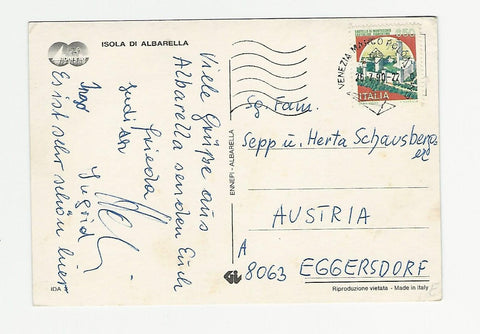 ISOLA DI ALBARELLA
Viele Grüße aus
Albarella senden Euch
Frieda
Judith
Ingo
Ingrid
Es ist sehr schön hier
IDA
ENNEPI - ALBARELLA
VENEZIA MARCO POLO
ITALIA
Sg. Fam.
Sepp u. Herta Schausberger
AUSTRIA
A
8063 EGGERSDORF
Riproduzione vietata - Made in Italy